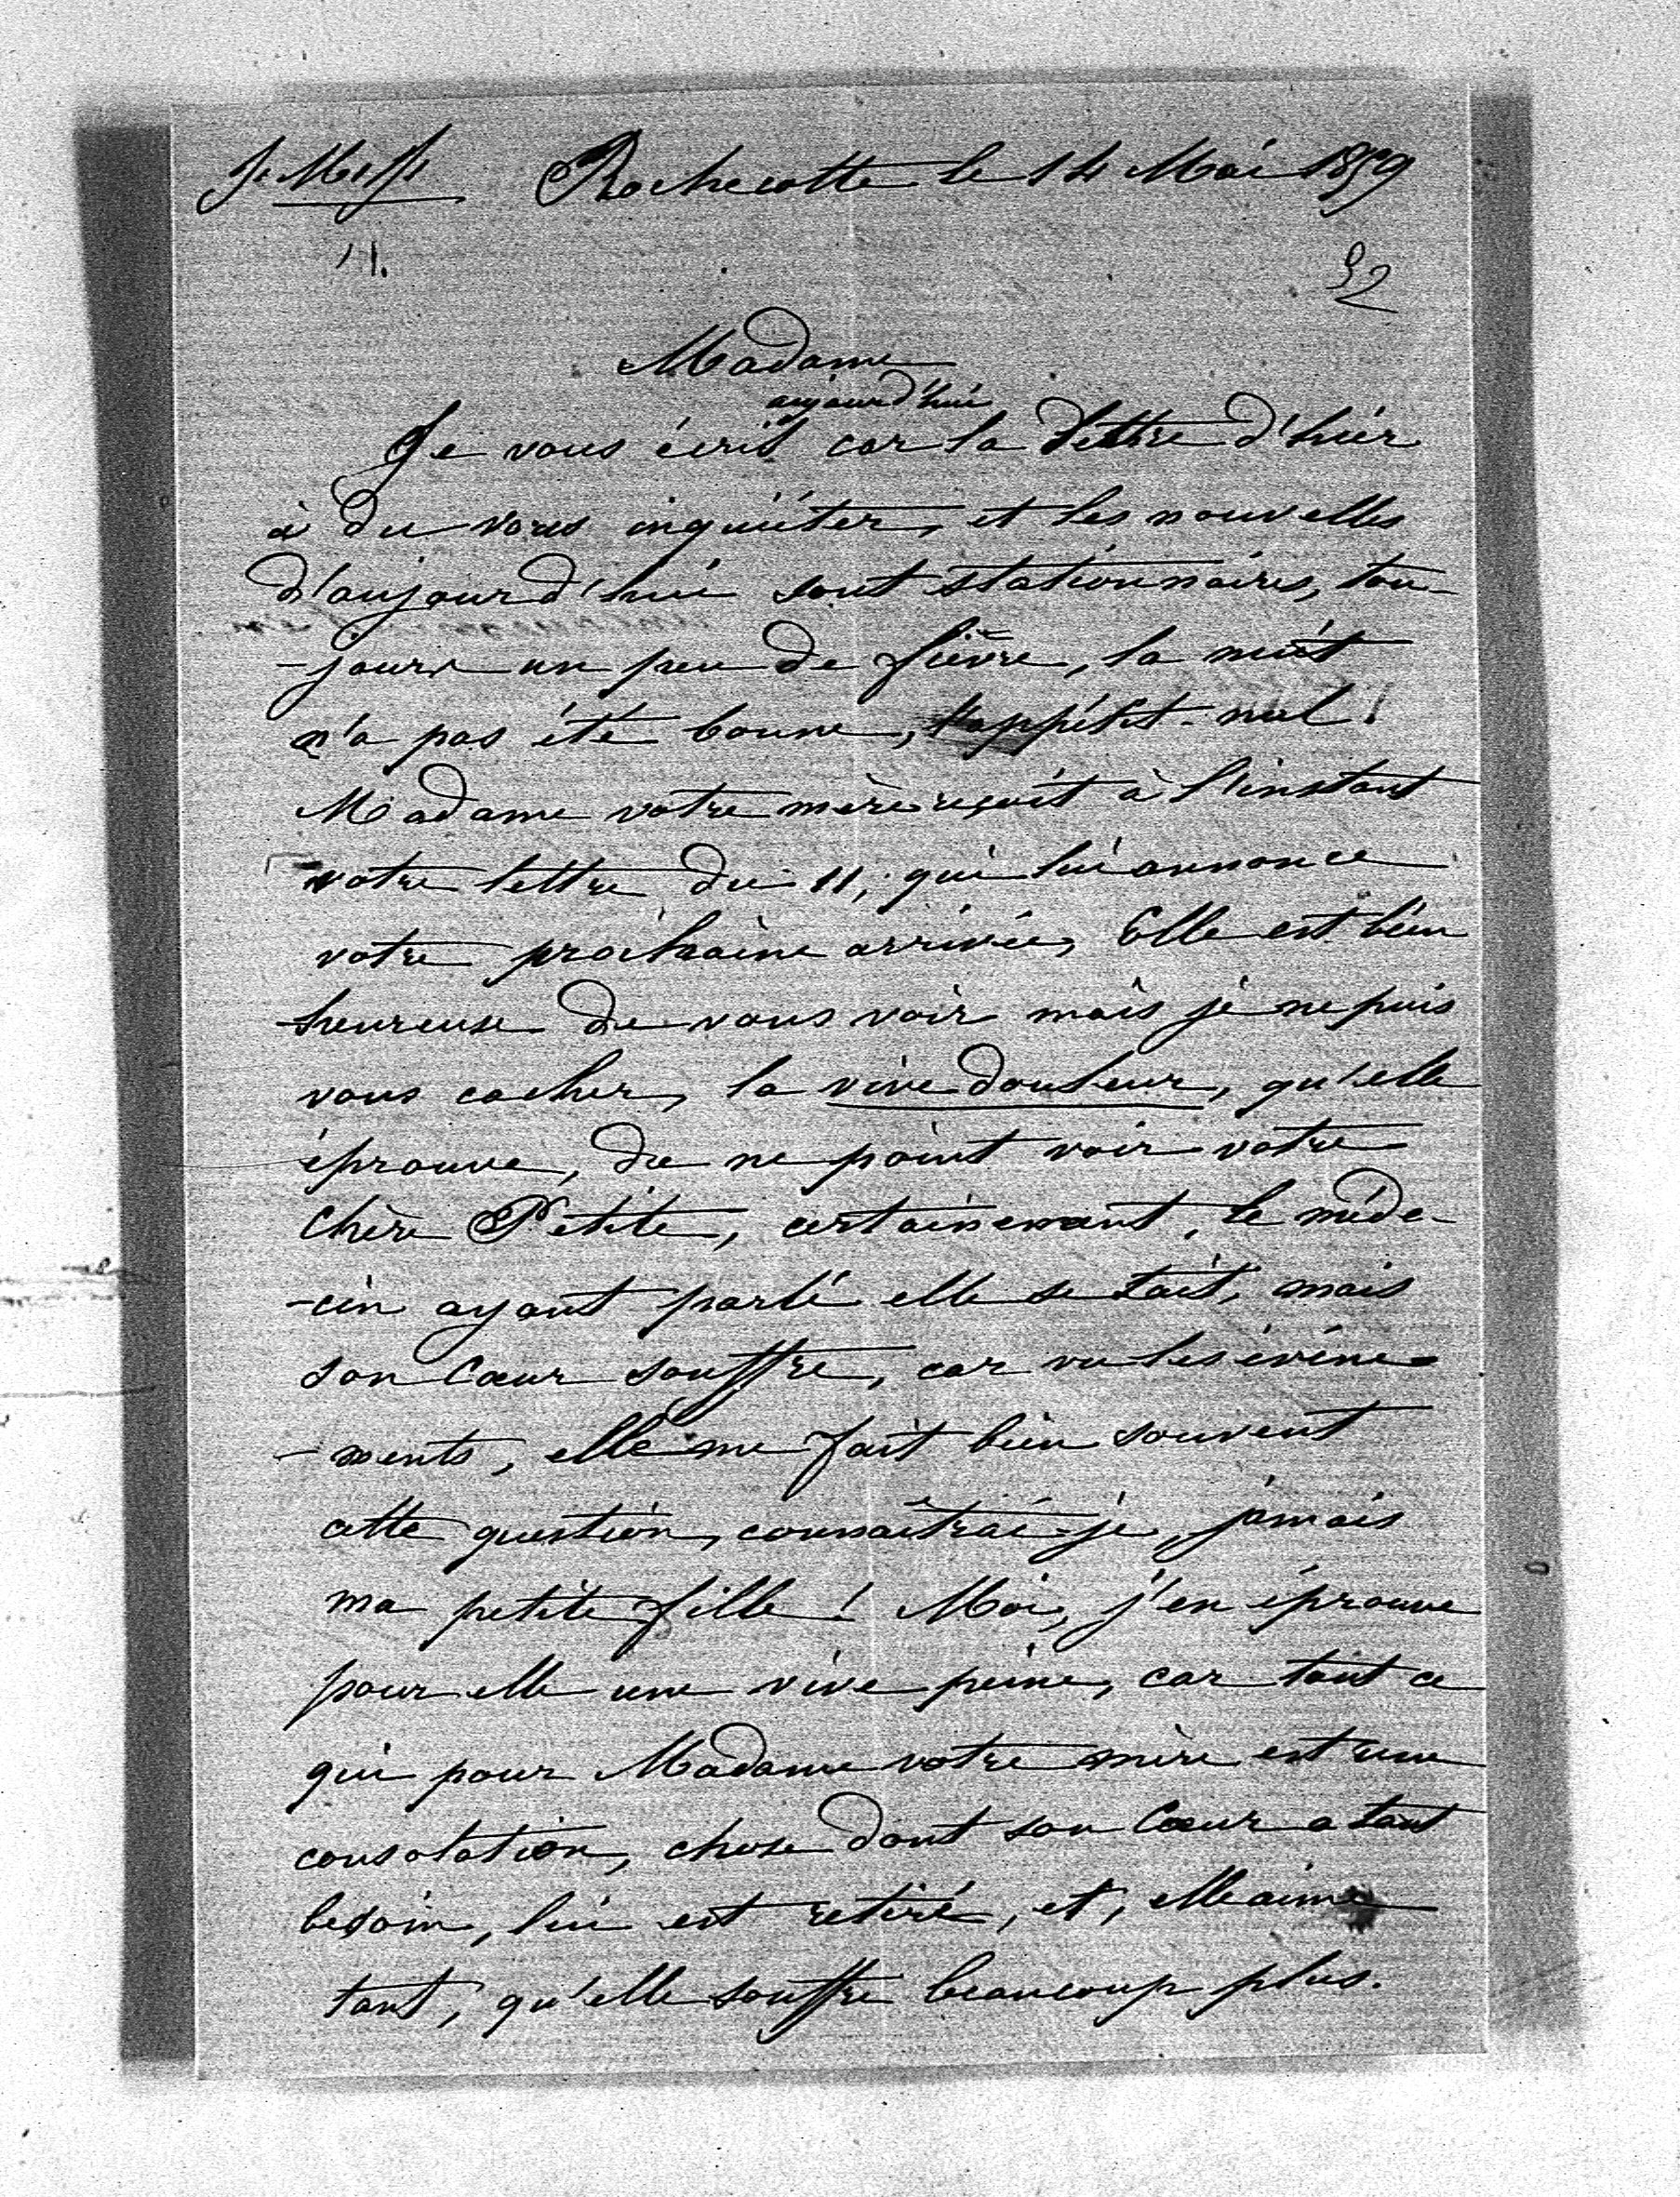 J. M. J. Rochecotte le 14 Mai 1859
11.
92
Madame
aujourd'hui
Je vous écris car la lettre d'hier
à du vous inquiéter, et les nouvelles
d'aujourd'hui sont stationnaires, tou-
-jours un peu de fièvre, la nuit
n'a pas été bonne, l'appétit nul!
Madame votre mère reçoit à l'instant
votre lettre du 11, qui lui annonce
votre prochaine arrivée, Elle est bien
heureuse de vous voir mais je ne puis
vous cacher, la vive douleur, qu'elle
éprouve, de ne point voir votre
chère Petite, certainement, le méde-
-cin ayant parlé elle se tait, mais
son Cœur souffre, car vu les évène-
-ments, elle me fait bien souvent
cette question, connaîtrai-je, jamais
ma petite fille! Moi, j'en éprouve
pour elle une vive peine, car tout ce
qui pour Madame votre mère est une
consolation, chose dont son Cœur a tant
besoin, lui est retiré, et, elle aime
tant, qu'elle souffre beaucoup plus.